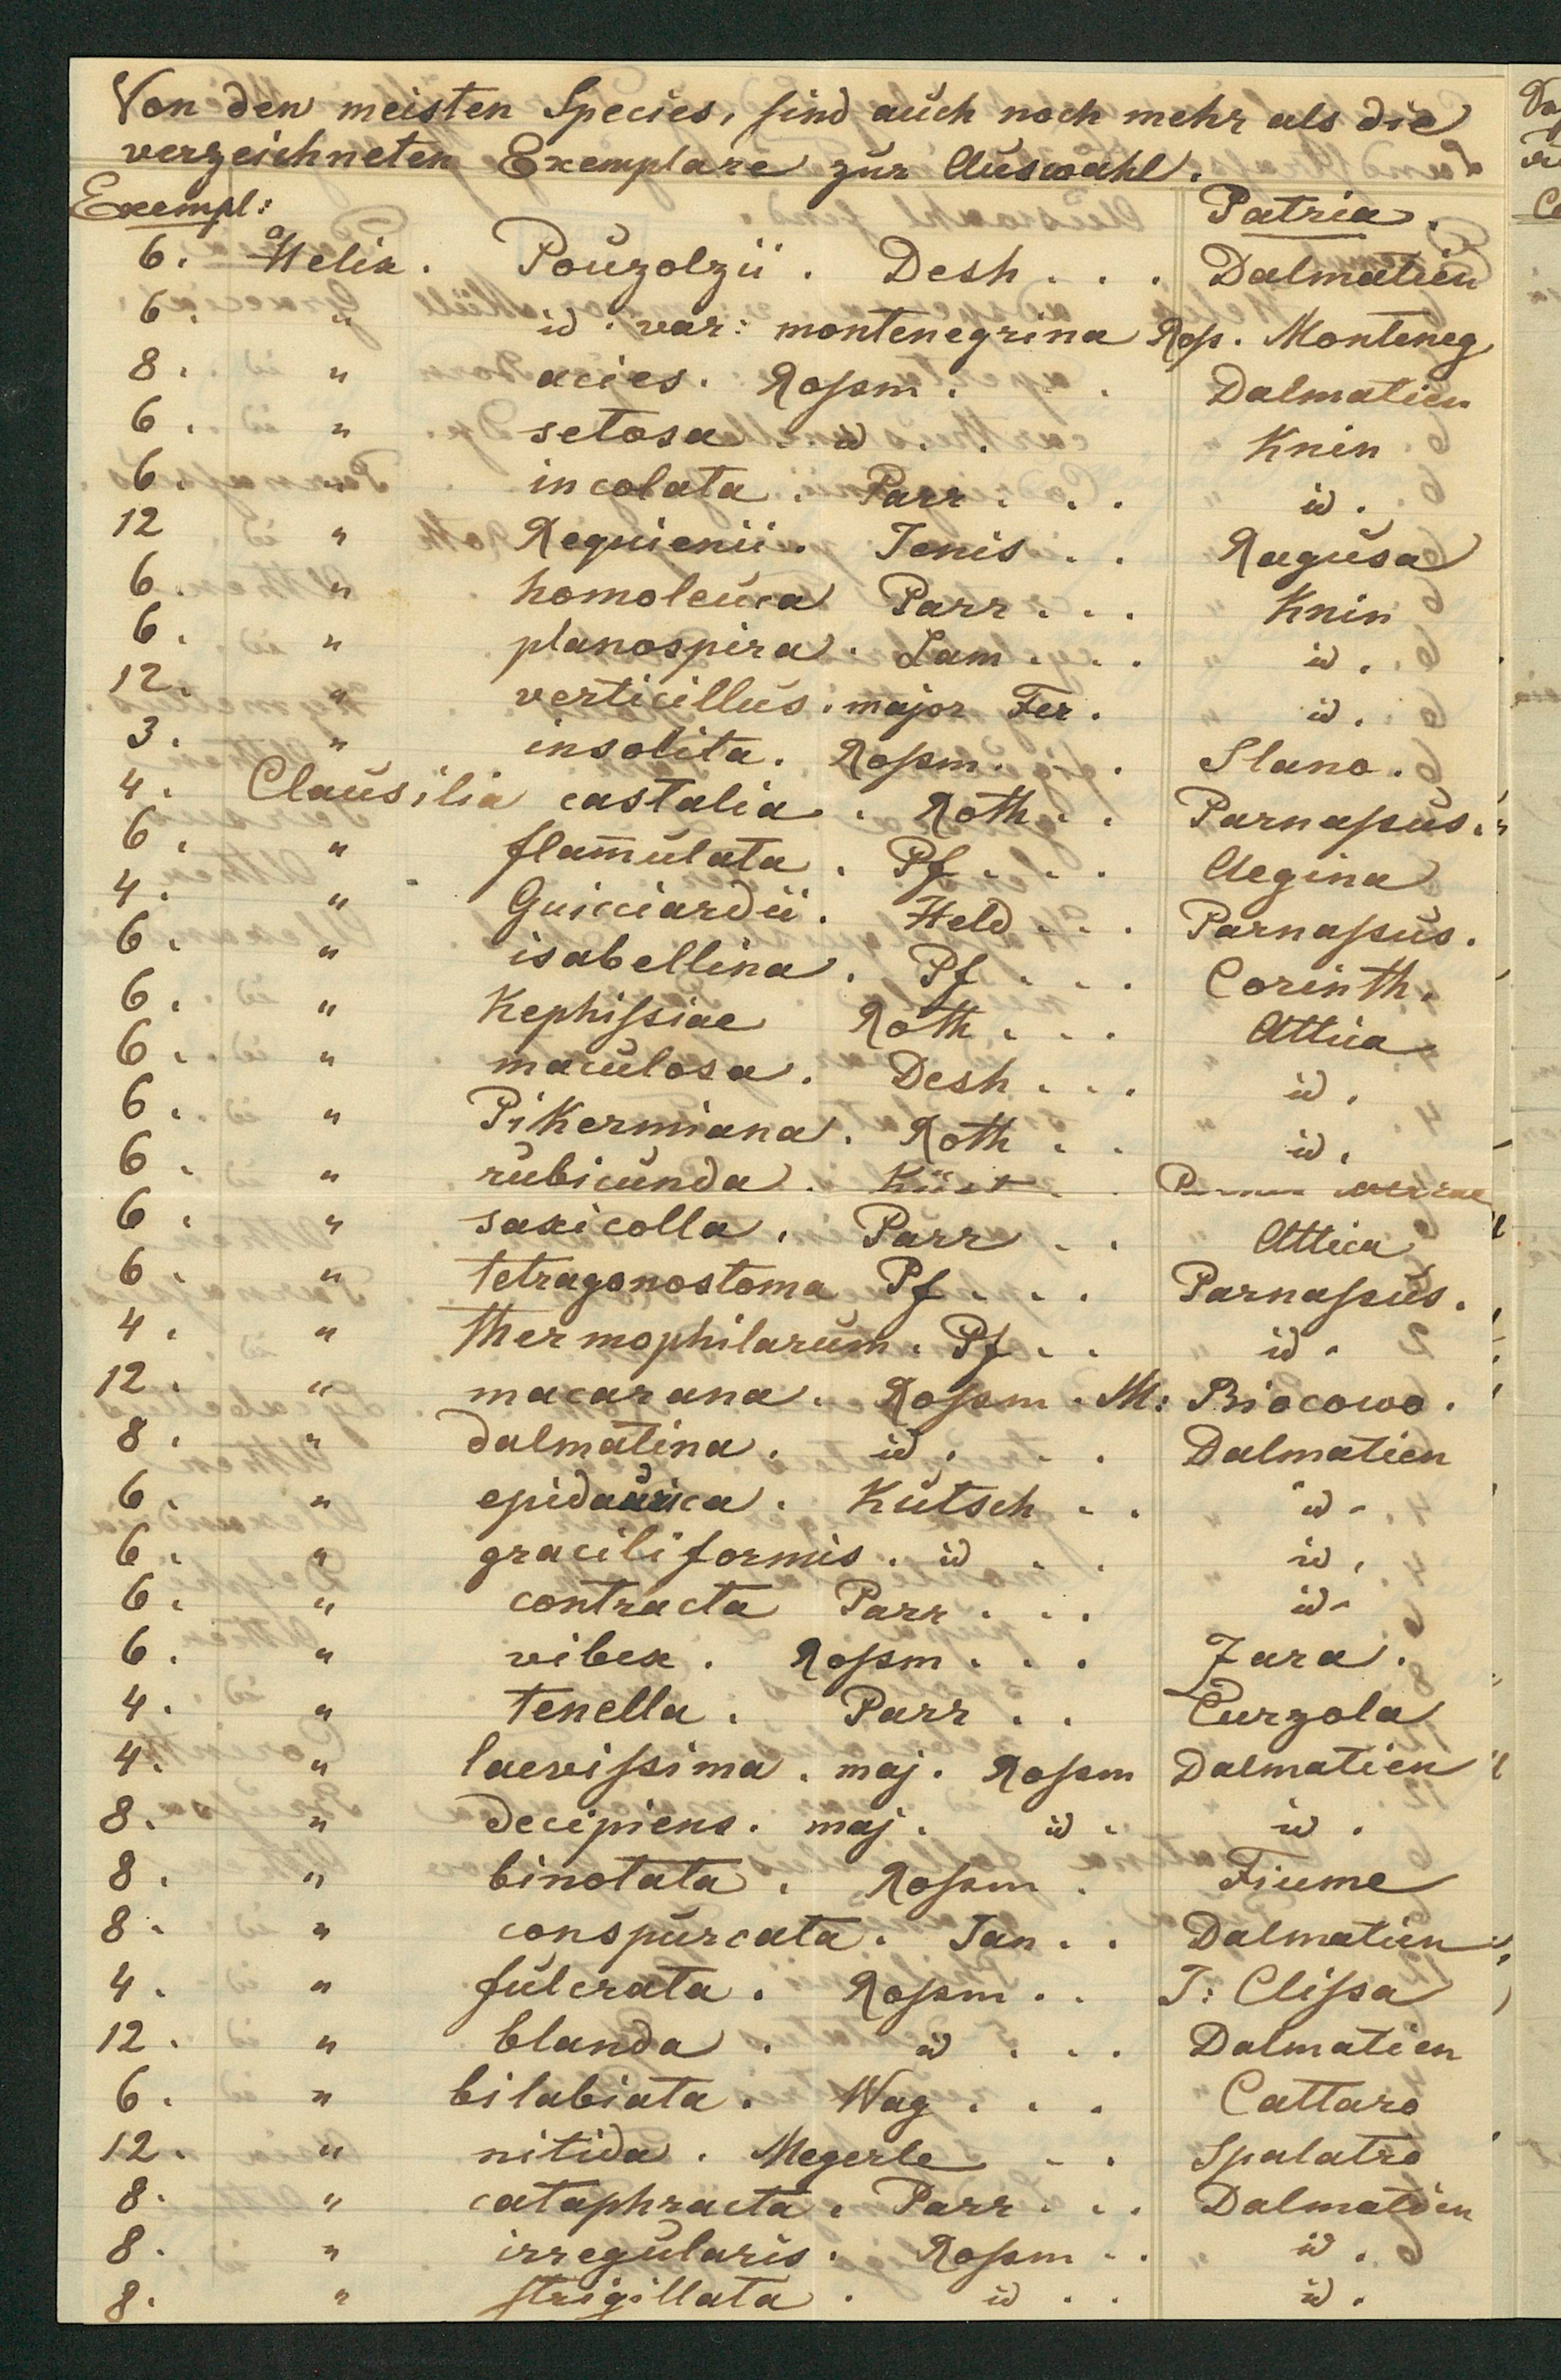 Von den meisten Species, sind auch noch mehr als die
verzeichneten Exemplare zur Auswahl.
Exempl: Patria.
6. Helix. Pouzolzii. Desh... Dalmatien
6. " id. var: montenegrina Roß. Monteneg
8. " acies. Roßm.. Dalmatien
6. " setosa. id.. Knin
6. " incolata. Parr... id.
12 " Requienii. Jenis.. Ragusa
6. " homoleuca Parr... Knin
6. " planospira. Lam... id.
12. " verticillus. major Fer. id.
3. " insolita. Roßm.. Slano.
4. Clausilia castalia. Roth.. Parnaßus.
6. " flam̅ulata. Pf... Aegina
4. " Guicciardii. Held... Parnaßus.
6. " isabellina. Pf... Corinth.
6. " Kephißiae Roth... Attica
6. " maculosa. Desh... id.
6. " Pikermiana. Roth.. id.
6. " rubicunda. Küst..
6. " saxicolla. Parr.. Attica
6. " tetragonostoma Pf... Parnaßus.
4. " thermophilarum. Pf.. id.
12. " macarana. Roßm. M: Biocowo.
8. " dalmatina. id... Dalmatien
6. " epidaurica. Kutsch.. id.
6. " graciliformis. id.. id.
6. " contracta Parr... id.
6. " vibex. Roßm... Zara.
4. " tenella. Parr.. Curzola
4. " laevißima. maj. Roßm Dalmatien
8. " decipiens. maj. id. id.
8. " binotata. Roßm. Fiume
8. " conspurcata. Jan.. Dalmatien
4. " fulcrata. Roßm.. F: Clißa
12. " blanda. id... Dalmatien
6. " bilabiata. Wag... Cattaro
12. " nitida. Megerle.. Spalatro
8. " cataphracta. Parr... Dalmatien
8. " irregularis. Roßm.. id.
8. " strigillata. id.. id.